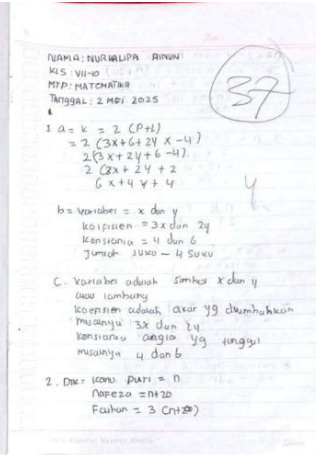 NAMA: NURHALIPA AINUN
KLS : VII-10
MTP: MATEMATIKA
Tanggal : 2 MEI 2025
37
1 a = k = 2 (P+L)
= 2 (3x+6+2y x -4)
2(3x + 2y + 6 -4)
2 (3x + 2y + 2
6 x + 4 y + 4
b = Variabel = x dan y
Koipisien = 3x dan 2y
Konstanta = 4 dan 6
Jumlah suku - 4 suku
C. Variabel adalah simbol x dan y
atau lambang
Koensien adalah yg
misalnya 3x dan 2y
Konstanta angka yg tunggal
misalnya 4 dan 6
2. Dik = Kanu puri = n
Nareza = n+20
Farhan = 3 (n+20)